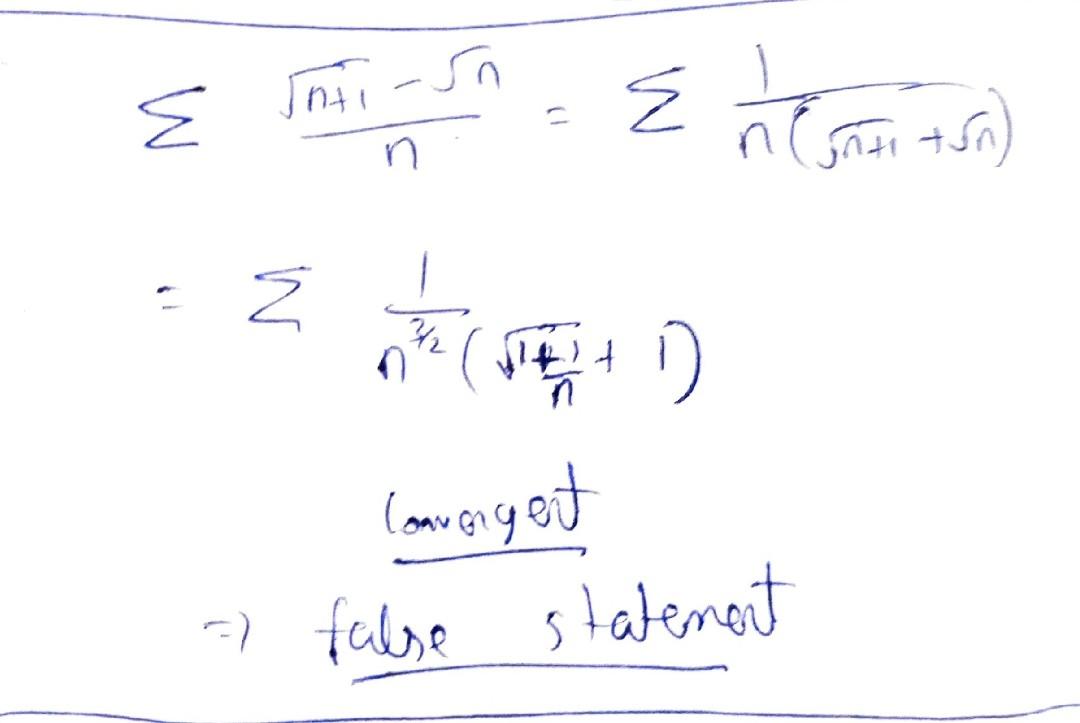 Σ (√n+1 - √n)/n = Σ 1/(n(√n+1 + √n))
= Σ 1/(n^3/2 (√1+1/n + 1))
Convergent
=) false statement